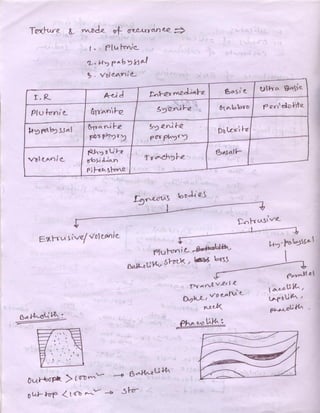 Texture & mode of occurance ⇒
1. Plutonic
2. Hypabyssal
3. Volcanic
I.R. Acid Intermediate Basic Ultra Basic
Plutonic Granite Syenite Gabbro Peridotite
Hypabyssal Granite porphyry Syenite porphyry Dolerite
Volcanic Rhyolite obsidian Pitchstone Trachyte Basalt
Igneous bodies
Extrusive/Volcanic Intrusive
Plutonic Hypabyssal
Batholith, Stock, boss
Transverse Parallel
Dyke, Volcanic neck Lacolith, Lapolith, phacolith
Batholith:
Phacolith:
outcrop > 100 m² → Batholith
outcrop < 100 m² →